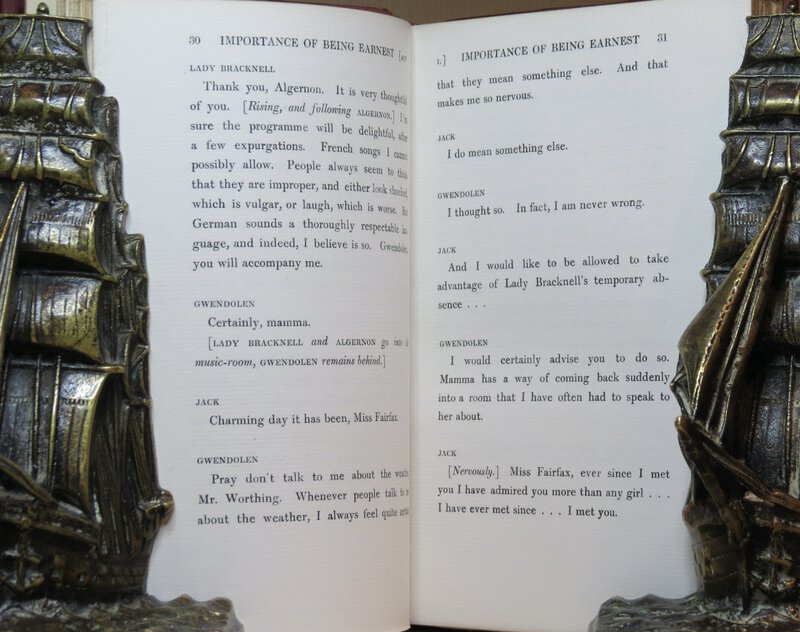 30 IMPORTANCE OF BEING EARNEST [ACT
LADY BRACKNELL
Thank you, Algernon. It is very thoughtful
of you. [Rising, and following ALGERNON.] I'm
sure the programme will be delightful, after
a few expurgations. French songs I cannot
possibly allow. People always seem to think
that they are improper, and either look shocked,
which is vulgar, or laugh, which is worse. But
German sounds a thoroughly respectable lan-
guage, and indeed, I believe is so. Gwendolen,
you will accompany me.
GWENDOLEN
Certainly, mamma.
[LADY BRACKNELL and ALGERNON go into the
music-room, GWENDOLEN remains behind.]
JACK
Charming day it has been, Miss Fairfax.
GWENDOLEN
Pray don't talk to me about the weather,
Mr. Worthing. Whenever people talk to me
about the weather, I always feel quite certain
I.] IMPORTANCE OF BEING EARNEST 31
that they mean something else. And that
makes me so nervous.
JACK
I do mean something else.
GWENDOLEN
I thought so. In fact, I am never wrong.
JACK
And I would like to be allowed to take
advantage of Lady Bracknell's temporary ab-
sence . . .
GWENDOLEN
I would certainly advise you to do so.
Mamma has a way of coming back suddenly
into a room that I have often had to speak to
her about.
JACK
[Nervously.] Miss Fairfax, ever since I met
you I have admired you more than any girl . . .
I have ever met since . . . I met you.